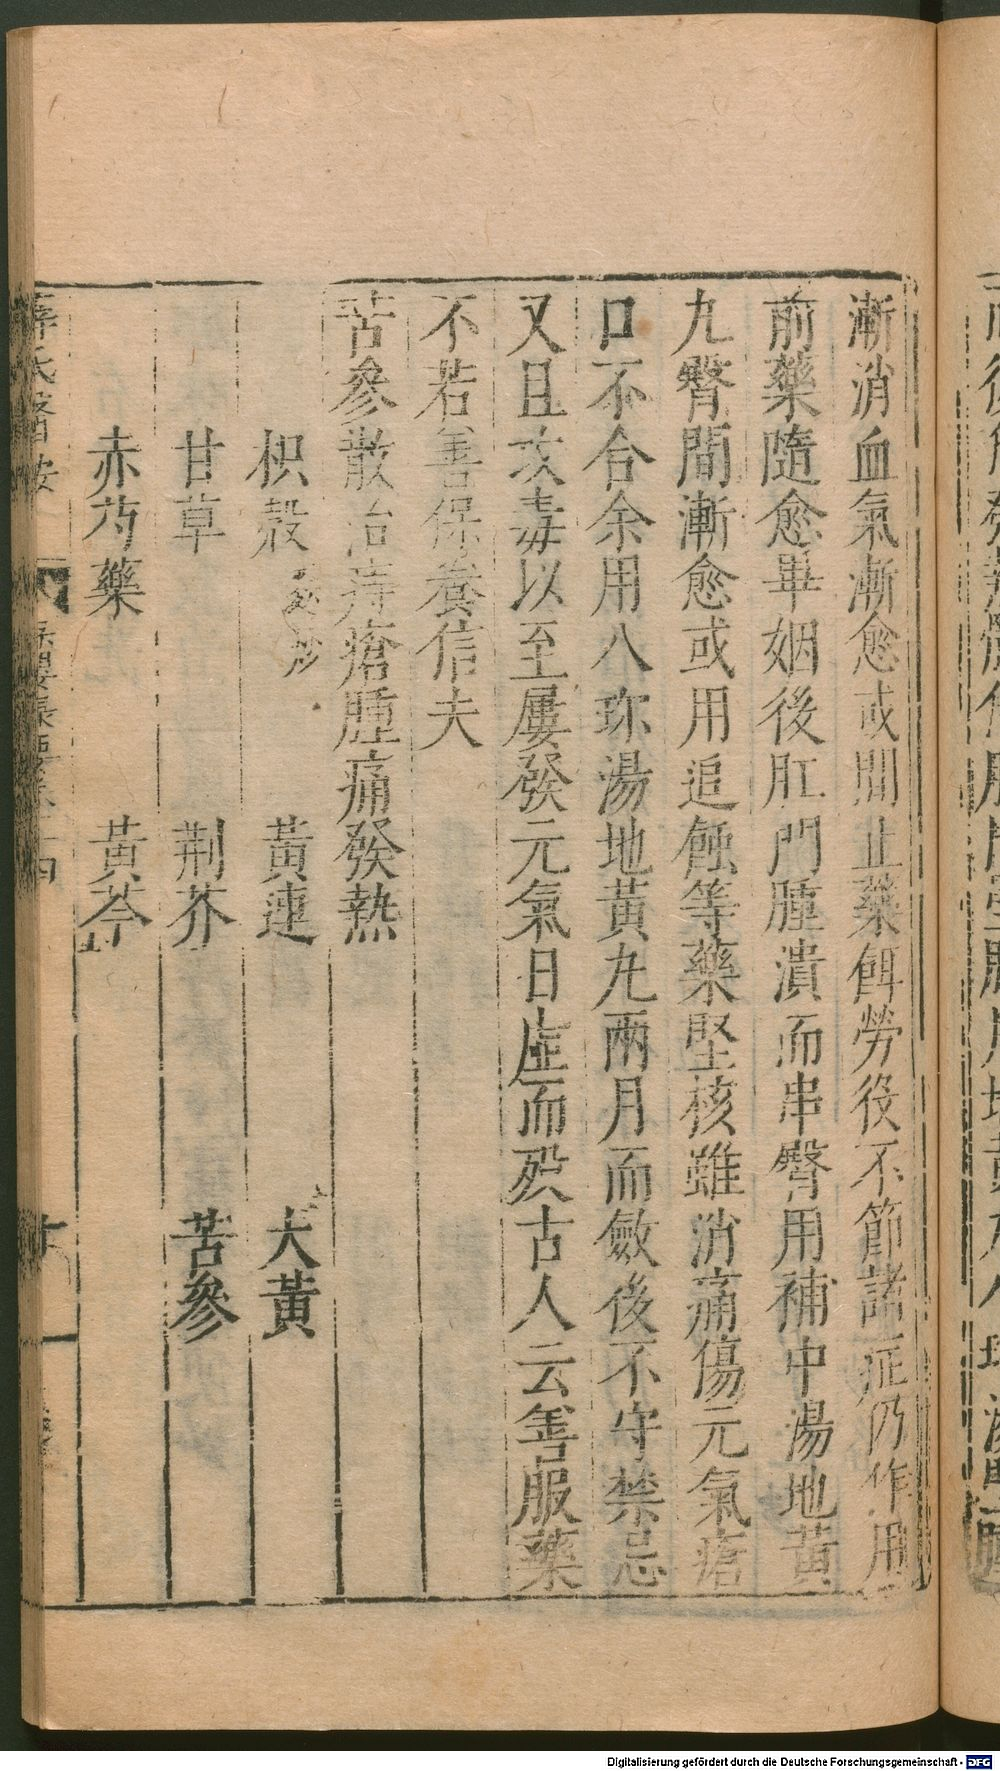 漸消血氣漸愈或間止藥餌勞役不節諸症仍作用
前藥隨愈畢姻後肛門腫潰而串臀用補中湯地黃
九臀間漸愈或用追蝕等藥堅核雖消痛傷元氣瘡
口不合余用八珎湯地黃九兩月而斂後不守禁忌
又且攻毒以至屢發元氣日虛而殁古人云善服藥
不若善保養信夫
苦參散治痔瘡腫痛發熱
枳殻 麩炒 黃連 大黃
甘草 荆芥 苦參
赤芍藥 黃芩
薛氏醫按
Digitalisierung gefördert durch die Deutsche Forschungsgemeinschaft - DFG